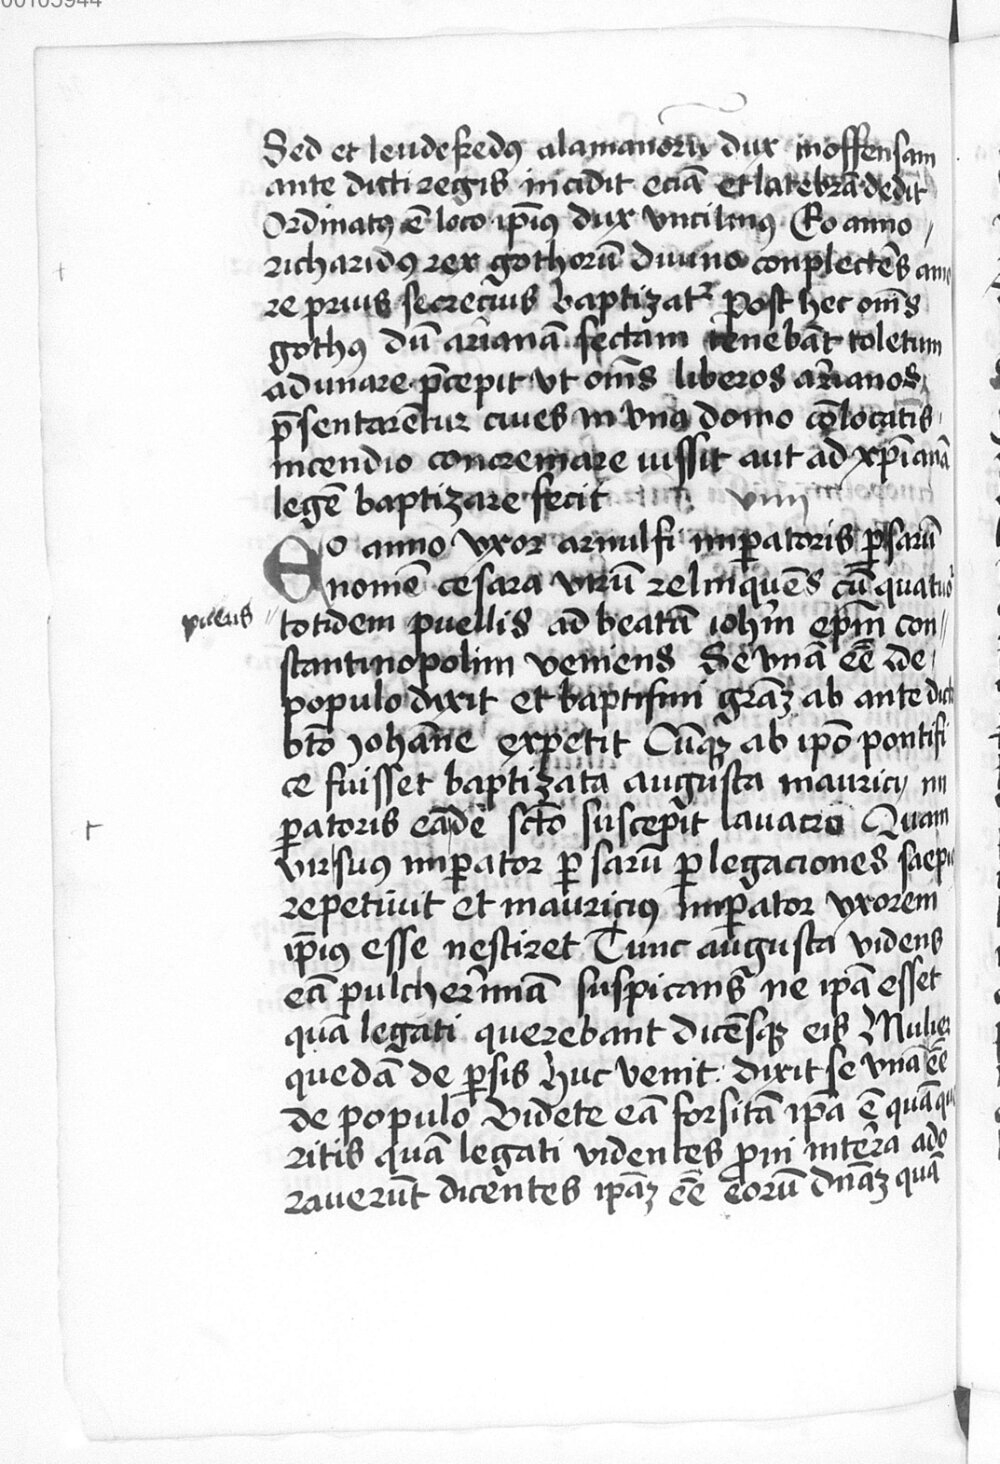 00105944
Sed et leudefredꝰ alamanorū dux in offensam
ante dicti regis incidit eciā et latebrā dedit
Ordinatꝰ ē loco ip̄ius dux vncilinꝰ Eo anno
richaridꝰ rex gothorū diuino conplectēs amo
re prius secrecius baptizatʳ Post hec om̄s
gothꝰ dū arianā sectam tenebāt toletum
adunare p̄cepit vt om̄s liberos arianos
p̄sentarētur ciues in vna domo cōlocatis
incendio concremare iussit aut ad xp̄ianā
legē baptizare fecit viiii
Eo anno vxor arnulfi imꝑatoris ꝑsarū
nomē cesara virū relinquēs cū quatuor
pueris
totidem puellis ad beatū ioh̄m ep̄m con
stantinopolim veniens Se vnā ēē de
populo dixit et baptismi gr̄az ab ante dicto
bt̄o Johāne expetit Cūqz ab ip̄o pontifi
ce fuisset baptizata augusta mauricij im
ꝑatoris eādē sct̄o suscepit lauacro Quam
vir suꝰ imꝑator ꝑsarū ꝑ legaciones saepe
repetiuit et mauriciꝰ imꝑator vxorem
ip̄ius esse nesciret Tunc augusta videns
eā pulcherrimā suspicans ne ip̄a esset
quā legati querebant dicēsqz eis Mulier
quedā de ꝑsis huc venit dixit se vnā ēē
de populo videte eā forsitā ip̄a ē quā que
ritis quā legati videntes ꝓni in terra ado
rauerūt dicentes ip̄az ēē eorū dn̄az quā